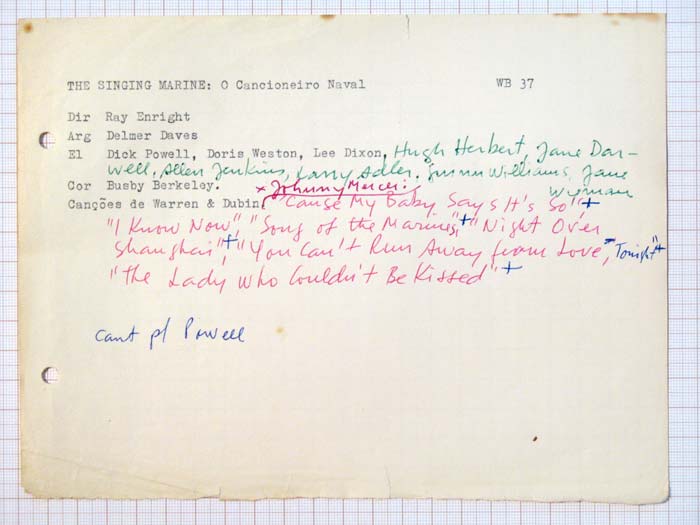 THE SINGING MARINE: O Cancioneiro Naval WB 37
Dir Ray Enright
Arg Delmer Daves
El Dick Powell, Doris Weston, Lee Dixon, Hugh Herbert, Jane Dar-
well, Allen Jenkins, Larry Adler, Guinn Williams, Jane
Wyman
Cor Busby Berkeley. × Johnny Mercer:
Canções de Warren & Dubin, "'Cause My Baby Says It's So" +
"I Know Now", "Song of the Marines" +, "Night Over
Shanghai" +, "You Can't Run Away from Love, Tonight" +
"The Lady Who Couldn't Be Kissed" +
cant pf Powell